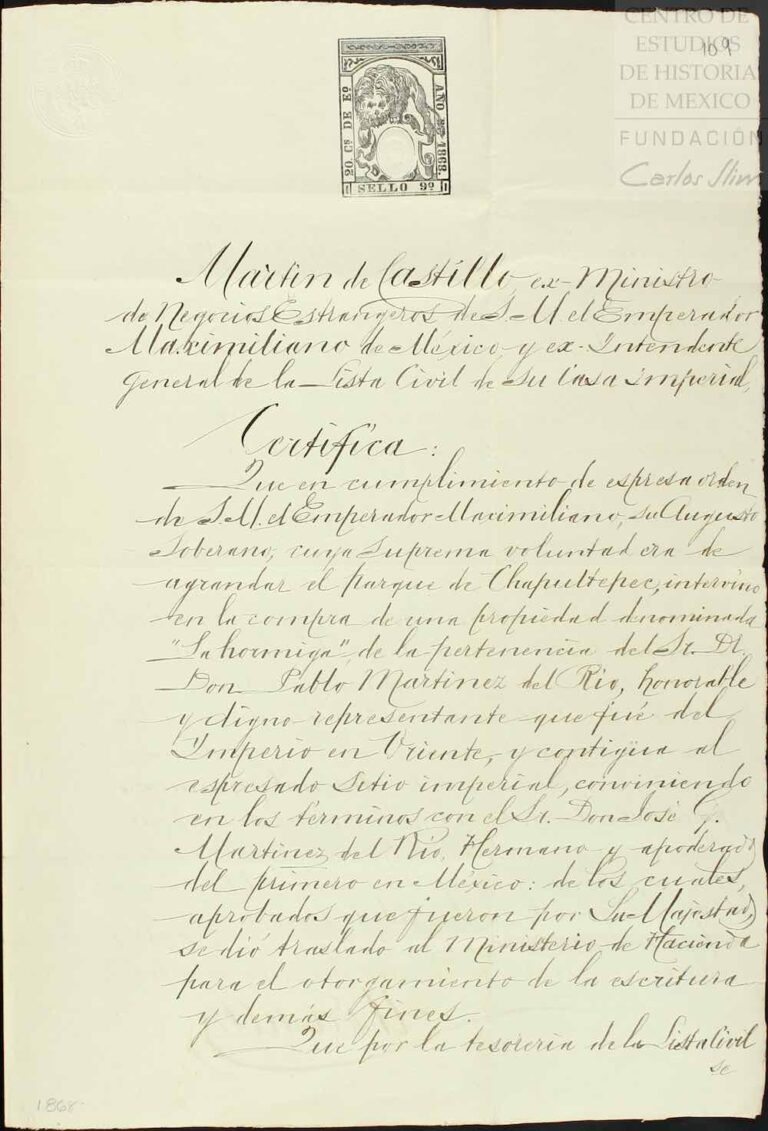 CENTRO DE
ESTUDIOS
DE HISTORIA
DE MEXICO
FUNDACIÓN
Carlos Slim
109
20 Cs DE Eo
AÑO DE 1868.
SELLO 9o
Martin de Castillo, ex-Ministro
de Negocios Estrangeros de S.M. el Emperador
Maximiliano de México y ex-Intendente
general de la Lista Civil de Su Casa Imperial,
Certifica:
Que en cumplimiento de espresa orden
de S.M. el Emperador Maximiliano, su Augusto
Soberano, cuya Suprema voluntad era de
agrandar el parque de Chapultepec, intervino
en la compra de una propiedad denominada
"La hormiga", de la pertenencia del Sr. Dr.
Don Pablo Martinez del Rio, honorable
y digno representante que fué del
Imperio en Oriente, y contigüa al
espresado Sitio imperial, conviniendo
en los términos con el Sr. Don José G.
Martinez del Rio, Hermano y apoderado
del primero en México: de los cuales,
aprobados que fueron por Su Majestad,
se dió traslado al Ministerio de Hacienda
para el otorgamiento de la escritura
y demás fines.
Que por la tesoreria de la Lista Civil
se
1868